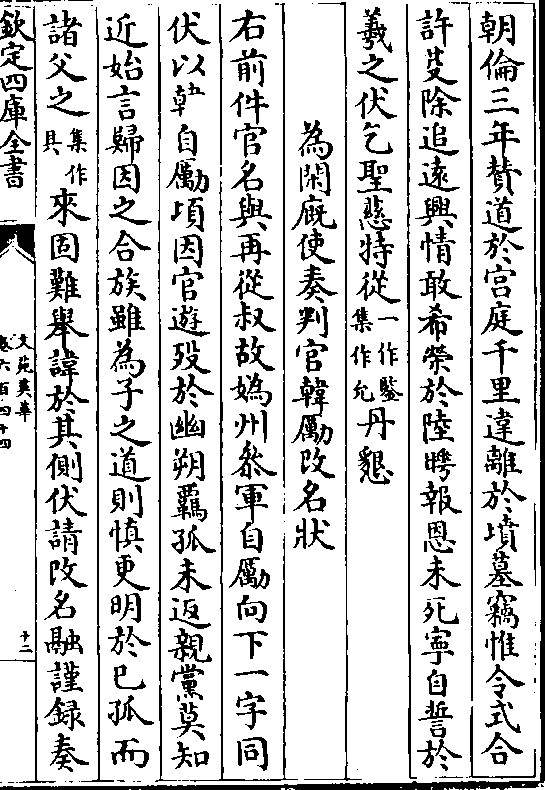 朝倫三年贊道於宫庭千里違離於墳墓竊惟令式合
許㕙除追逺興情敢希榮於陸𬀩報恩未死寜自誓於
羲之伏乞聖慈特從一作鑒集作允丹懇
為閑廐使奏判官韓勵改名狀
右前件官名與再從叔故媯州叅軍自勵向下一字同
伏以韓自勵頃因官遊殁於幽朔覊孤未返親黨莫知
近始言歸因之合族雖為子之道則慎更明於已孤而
諸父之集作具來固難舉諱於其側伏請改名融謹録奏
欽定四庫全書
文苑英華
卷六百四十四
十二